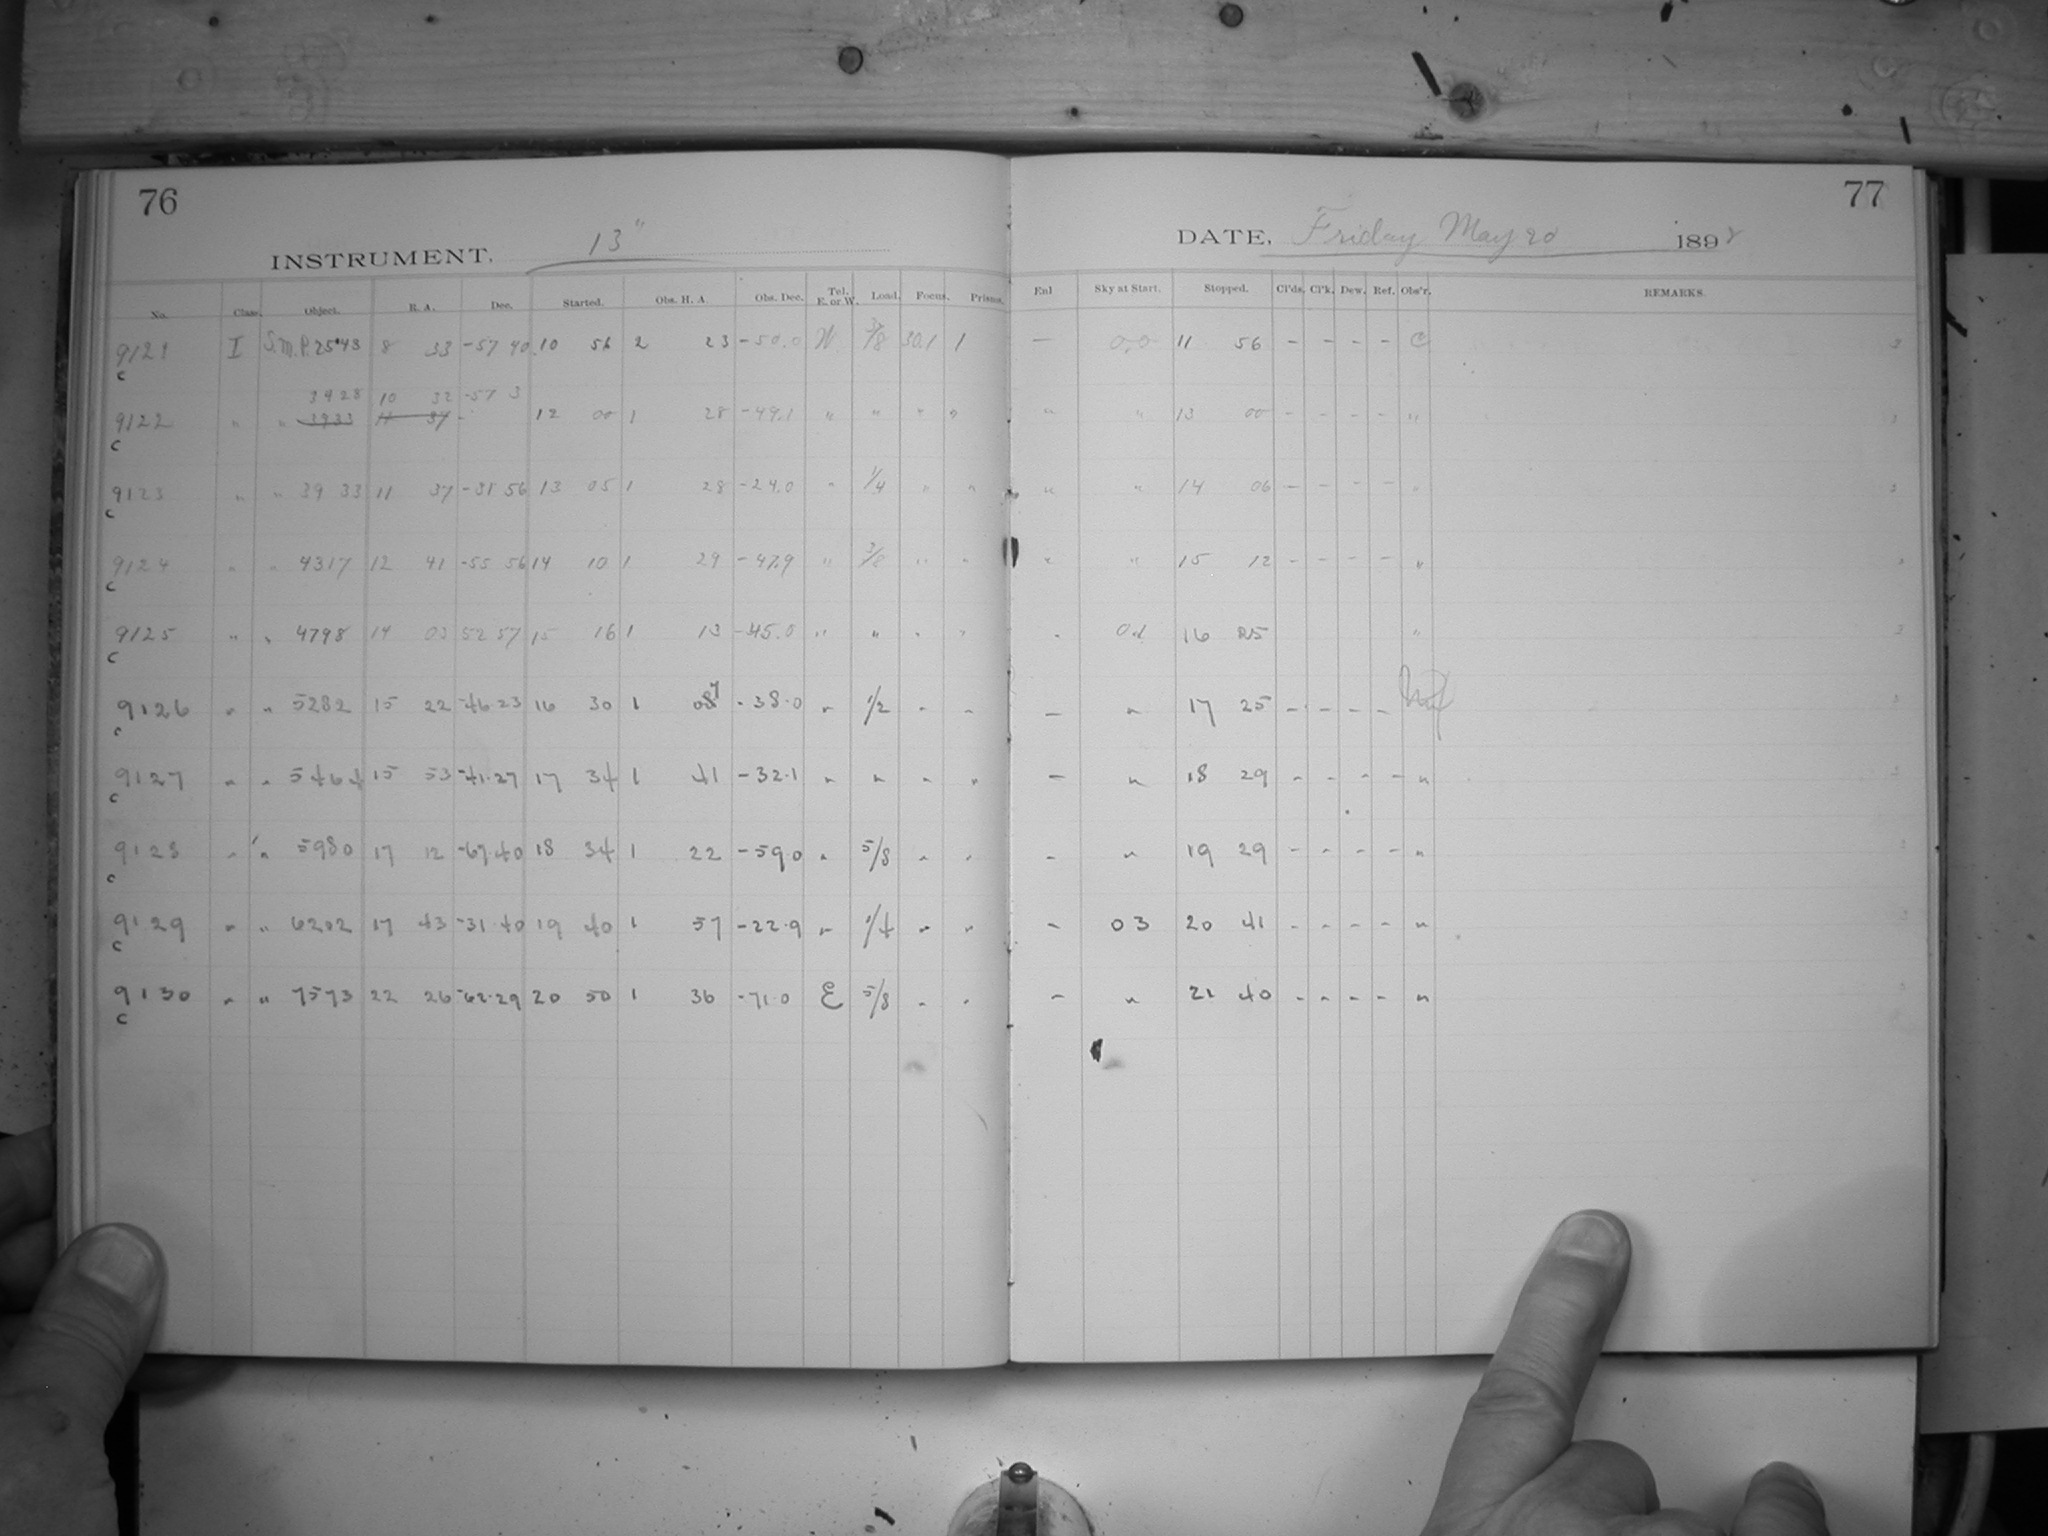 76
77
INSTRUMENT, 13"
DATE, Friday May 20 1898
No. Class. Object. R. A. Dec. Started. Obs. H. A. Obs. Dec. Tel. E. or W. Load. Focus. Prisms. Enl Sky at Start. Stopped. Cl'ds. Cl'k. Dew. Ref. Obs'r. REMARKS.
9121 I S.M.P. 2543 8 33 -57 40 10 56 2 23 -50.0 W 3/8 30.1 1 — 0.0 11 56 - - - - C
c
3428 10 32 -57 3
9122 " " 3933 11 37 - 12 00 1 28 -49.1 " " " " " " 13 00 - - - - "
c
9123 " " 3933 11 37 -31 56 13 05 1 28 -24.0 " 1/4 " " " " 14 06 - - - - "
c
9124 " " 4317 12 41 -55 56 14 10 1 29 -47.9 " 3/8 " " " " 15 12 - - - - "
c
9125 " " 4798 14 03 52 57 15 16 1 13 -45.0 " " " " " 16 25 "
c
9126 " " 5282 15 22 -46.23 16 30 1 -38.0 " 1/2 " " — " 17 25 - - - -
c
9127 " " 5464 15 53 -41.27 17 34 1 41 -32.1 " " " " — " 18 29 - - - - "
c
9128 " " 5980 17 12 -67.40 18 34 1 22 -59.0 " 5/8 " " — " 19 29 - - - - "
c
9129 " " 6202 17 43 -31.40 19 40 1 57 -22.9 " 1/4 " " — 03 20 41 - - - - "
c
9130 " " 7573 22 26 -62.29 20 50 1 36 -71.0 E 5/8 " " — " 21 40 - - - - "
c